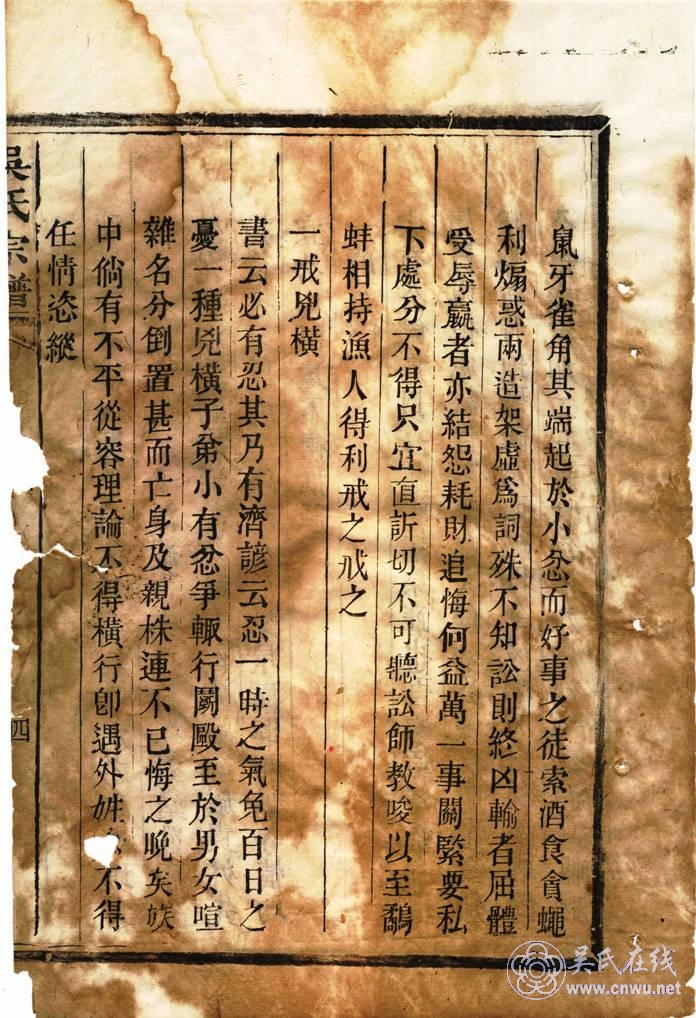 鼠牙雀角其端起於小忿而好事之徒索酒食貪蠅
利煽惑兩造架虛爲詞殊不知訟則終凶輸者屈體
受辱贏者亦結怨耗財追悔何益萬一事關緊要私
下處分不得只宜直訴切不可聽訟師教唆以至鷸
蚌相持漁人得利戒之戒之
一戒兇橫
書云必有忍其乃有濟諺云忍一時之氣免百日之
憂一種兇橫子弟小有忿爭輒行鬭毆至於男女喧
雜名分倒置甚而亡身及親株連不已悔之晚矣族
中倘有不平從容理論不得橫行卽遇外姓不得
任情恣縱
吳氏宗譜
四
吴氏在线
www.cnwu.net